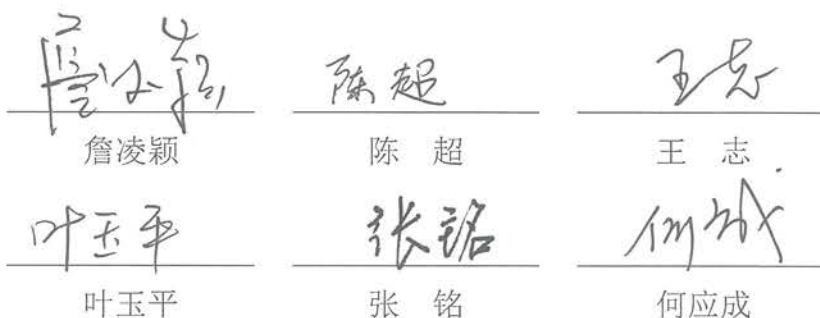 詹凌颖 陈超 王志
詹凌颖 陈 超 王 志
叶玉平 张铭 何应成
叶玉平 张 铭 何应成